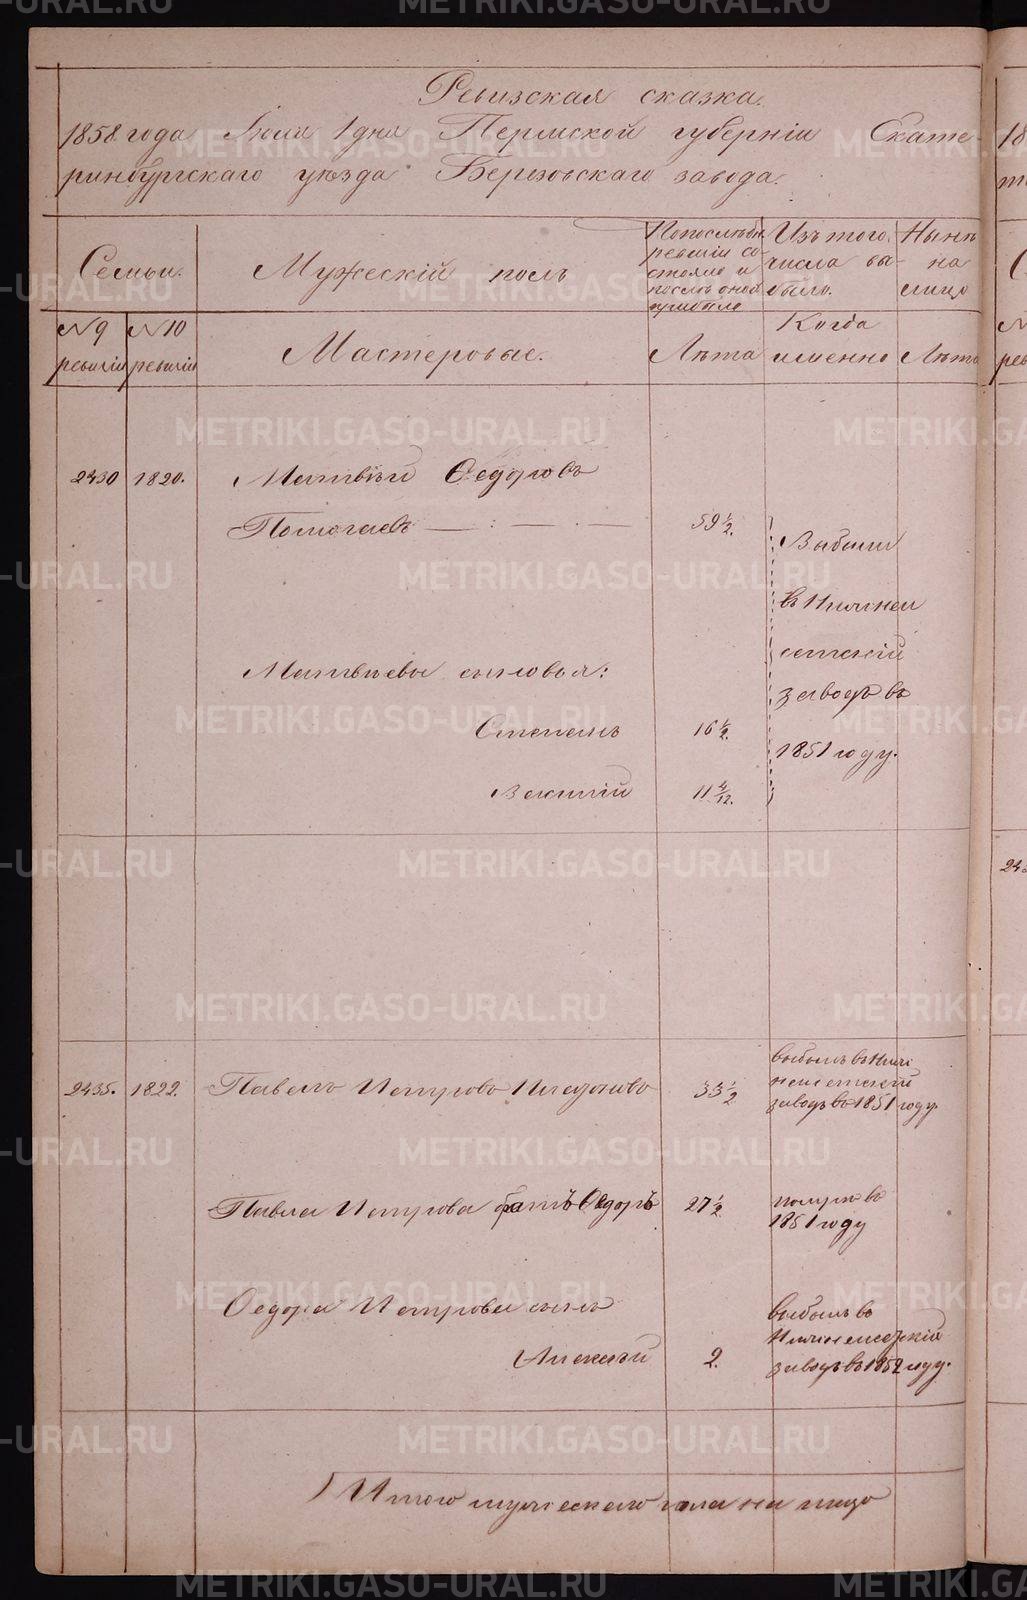 Ревизская сказка.
1858 года Iюня 1 дня Пермской губернiи Екате-
ринбургскаго уѣзда Березовскаго завода.
Семьи.
Мужескiй полъ
По послѣдн.
ревизiи со-
стояло и
послѣ оной
прибыло
Изъ того
числа вы-
было.
Нынѣ
на
лицо
№ 9
ревизiи
№ 10
ревизiи
Мастеровые.
Лѣта
Когда
именно
Лѣта
2430 1820. Матвѣй Ѳедоровъ
59 ½.
Выбыли
въ Нижне
сетскiй
заводъ въ
1851 году.
Матвѣевы сыновья:
Степанъ 16 ½.
11
2435. 1822. Павелъ Петровъ 33 ½
выбылъ въ Ниж
неисетскiй
заводъ въ 1851 году.
Павла Петрова братъ Ѳедоръ 27 ½
1851 году
Ѳедора Петрова сынъ
Алексѣй 2.
выбылъ въ
Нижнеисетскiй
заводъ въ 1852 году.
Итого мужескаго пола на лицо
METRIKI.GASO-URAL.RU